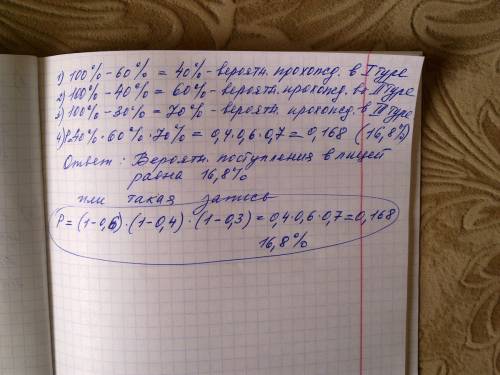 1) 100% - 60% = 40% - вероятн. прохожд. в I туре
2) 100% - 40% = 60% - вероятн. прохожд. во II туре
3) 100% - 30% = 70% - вероятн. прохожд. в III туре
4) 40% · 60% · 70% = 0,4·0,6·0,7 = 0,168 (16,8%)
Ответ: Вероятн. поступления в лицей
равна 16,8%
или такая запись
P = (1-0,6)·(1-0,4)·(1-0,3) = 0,4·0,6·0,7 = 0,168
16,8%